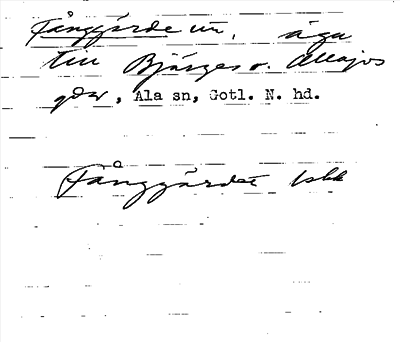 Fånggärde un, äga
till Bjärges o. Allajos
gdar, Ala sn, Gotl. N. hd.
Fånggärdet